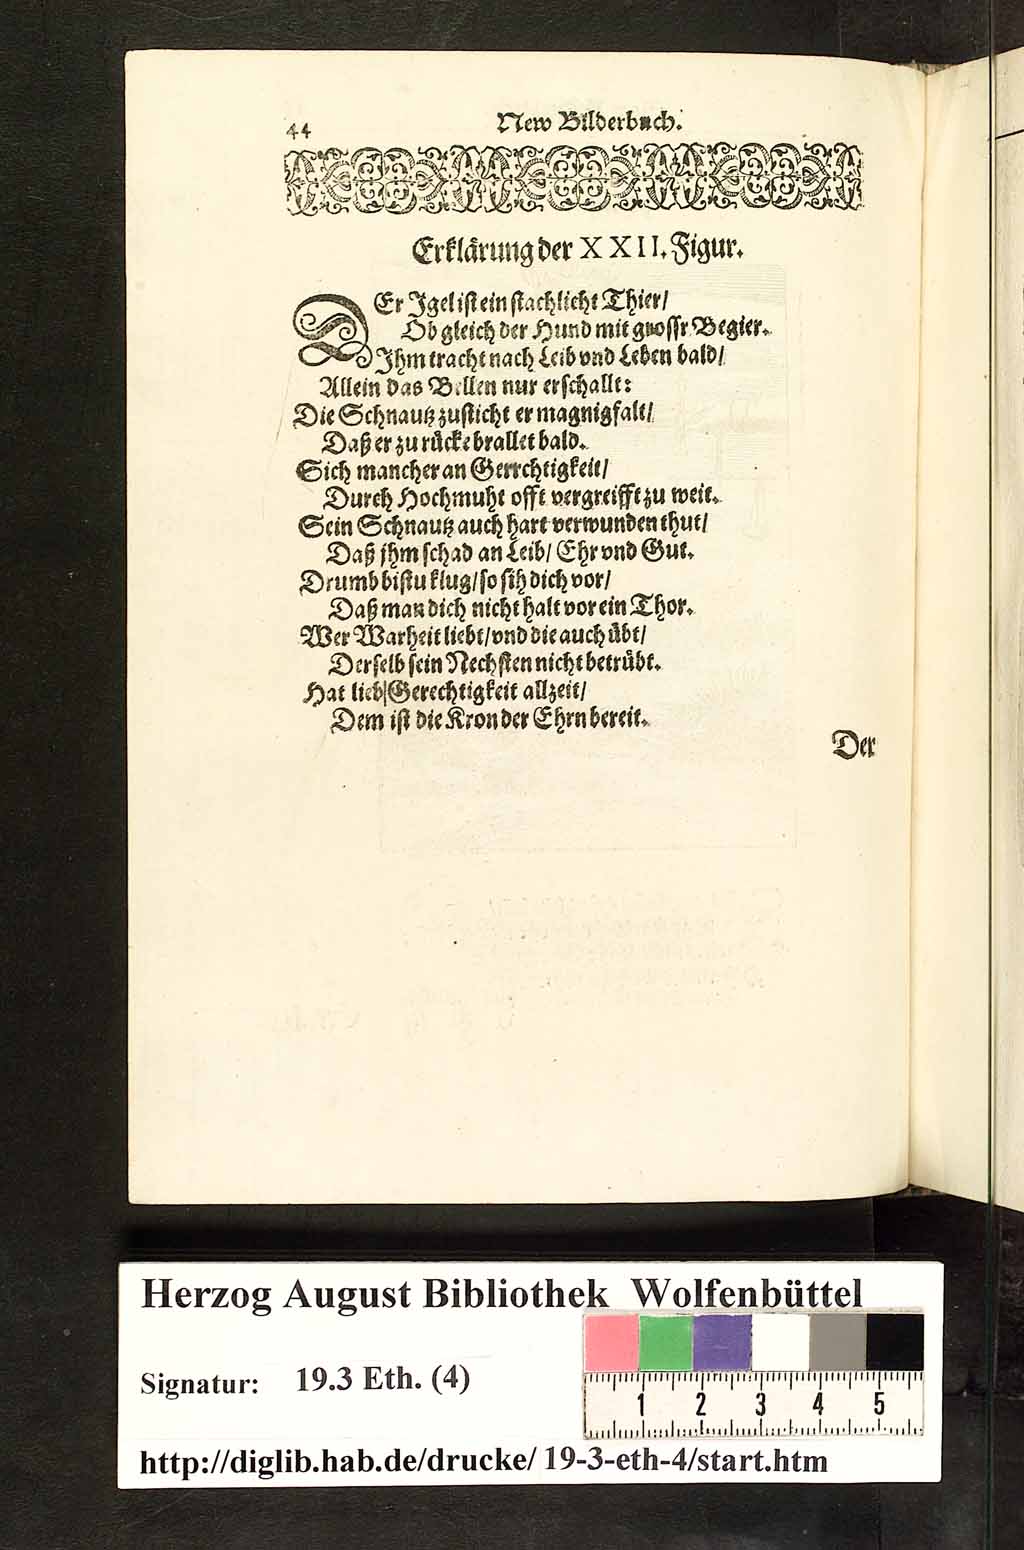 44 New Bilderbuch.
Erklärung der XXII. Figur.
DEr Igel ist ein stachlicht Thier/
Ob gleich der Hund mit grossr Begier.
Ihm tracht nach Leib vnd Leben bald/
Allein das Bellen nur erschallt:
Die Schnautz zusticht er magnigfalt/
Daß er zu rücke brallet bald.
Sich mancher an Gerrchtigkeit/
Durch Hochmuht offt vergreifft zu weit.
Sein Schnautz auch hart verwunden thut/
Daß jhm schad an Leib/ Ehr vnd Gut.
Drumb bistu klug/ so sih dich vor/
Daß man dich nicht halt vor ein Thor.
Wer Warheit liebt/ vnd die auch übt/
Derselb sein Nechsten nicht betrübt.
Hat lieb Gerechtigkeit allzeit/
Dem ist die Kron der Ehrn bereit.
Der
Herzog August Bibliothek Wolfenbüttel
Signatur: 19.3 Eth. (4)
1 2 3 4 5
http://diglib.hab.de/drucke/19-3-eth-4/start.htm